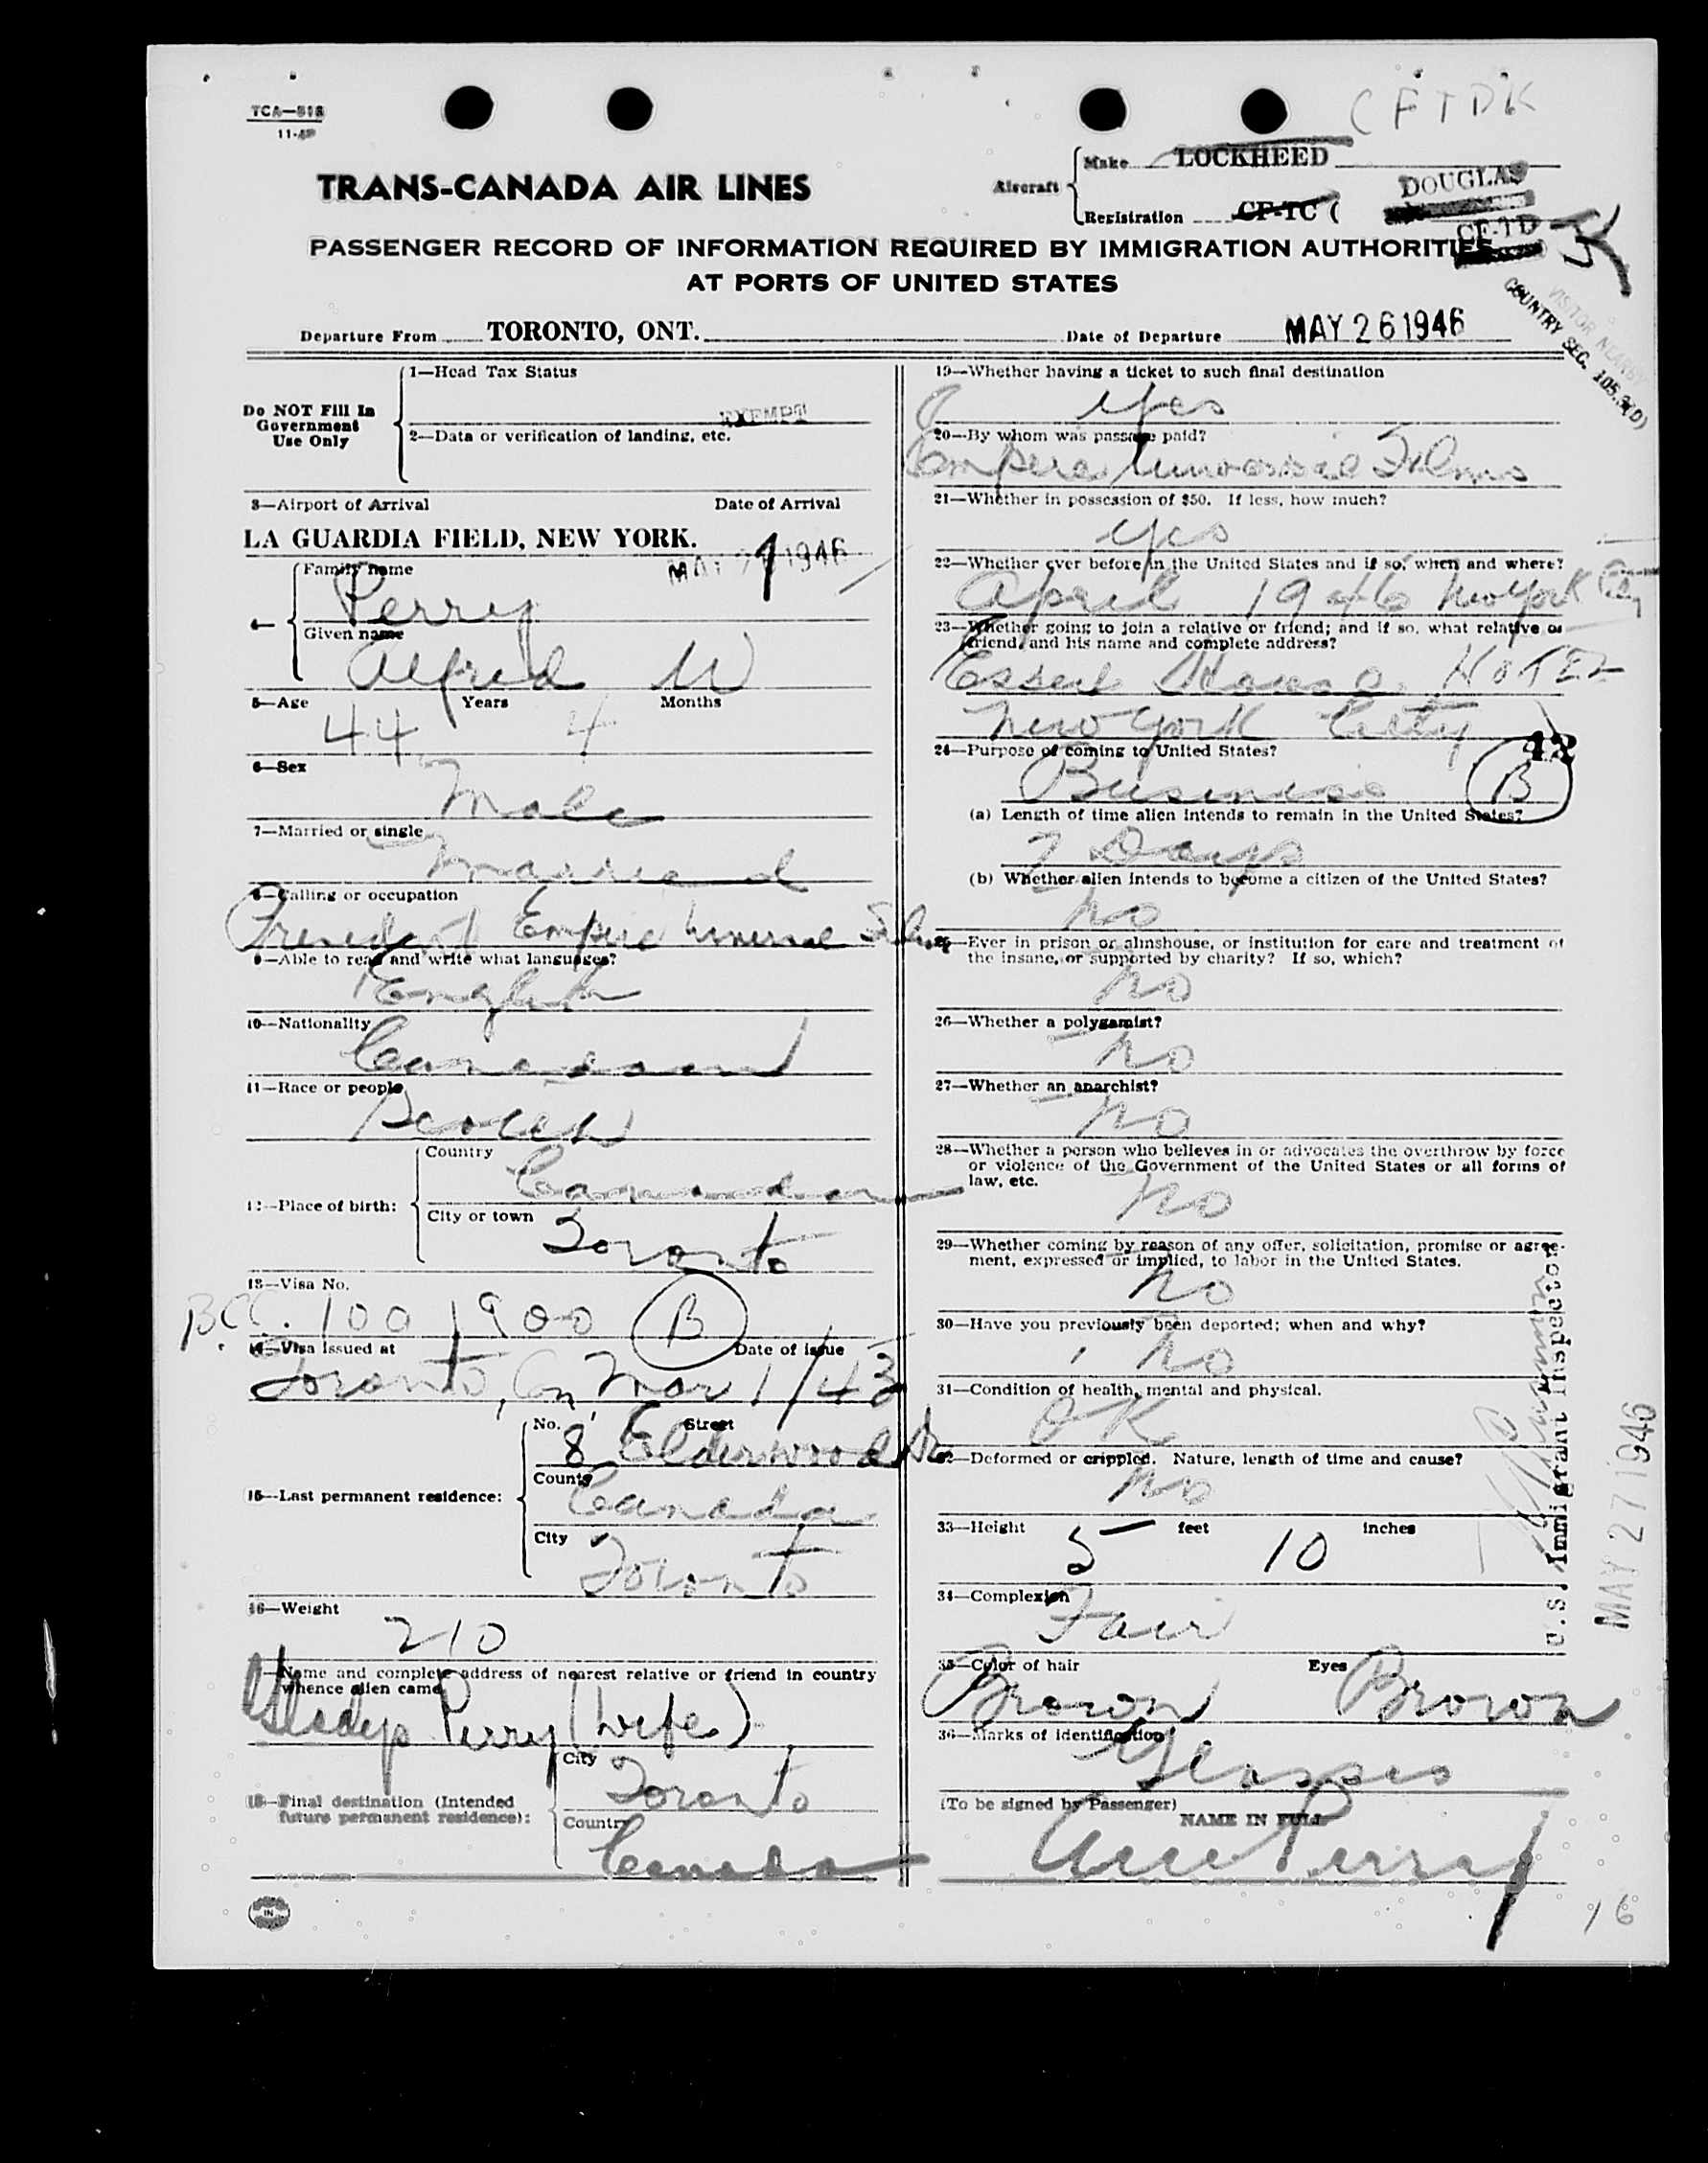 TCA—518
CFTDK
TRANS-CANADA AIR LINES
Aircraft
Make LOCKHEED
DOUGLAS
Registration CF-TC (
CF-TD K
PASSENGER RECORD OF INFORMATION REQUIRED BY IMMIGRATION AUTHORITIES
AT PORTS OF UNITED STATES
VISITOR NEARBY
COUNTRY SEC. 105.3(D)
Departure From TORONTO, ONT.
Date of Departure MAY 26 1946
Do NOT Fill In
Government
Use Only
1—Head Tax Status
EXEMPT
2—Data or verification of landing, etc.
3—Airport of Arrival Date of Arrival
LA GUARDIA FIELD, NEW YORK.
MAY 1946
4—
Family name
Perry
Given name
Alfred W
5—Age Years Months
44 4
6—Sex
Male
7—Married or single
Married
8—Calling or occupation
President Empire Universal Films
9—Able to read and write what languages?
English
10—Nationality
Canadian
11—Race or people
Scotch
12—Place of birth:
Country
Canada
City or town
Toronto
13—Visa No.
B.C.C. 100 1900 B
14—Visa issued at Date of issue
Toronto, Can Mar 1/43
15—Last permanent residence:
No. Street
8 Elderwood Dr
County
Canada
City
Toronto
16—Weight
210
Name and complete address of nearest relative or friend in country
whence alien came
Gladys Perry (wife)
18—Final destination (Intended
future permanent residence):
City
Toronto
Country
Canada
IN
19—Whether having a ticket to such final destination
yes
20—By whom was passage paid?
Empire Universal Films
21—Whether in possession of $50. If less, how much?
yes
22—Whether ever before in the United States and if so, when and where?
April 1946 New York City
23—Whether going to join a relative or friend; and if so, what relative or
friend, and his name and complete address?
Essex House HOTEL
New York City
24—Purpose of coming to United States?
42
Business B
(a) Length of time alien intends to remain in the United States?
7 Days
(b) Whether alien intends to become a citizen of the United States?
No
25—Ever in prison or almshouse, or institution for care and treatment of
the insane, or supported by charity? If so, which?
No
26—Whether a polygamist?
No
27—Whether an anarchist?
No
28—Whether a person who believes in or advocates the overthrow by force
or violence of the Government of the United States or all forms of
law, etc.
No
29—Whether coming by reason of any offer, solicitation, promise or agree-
ment, expressed or implied, to labor in the United States.
No
30—Have you previously been deported; when and why?
No
31—Condition of health, mental and physical.
OK
32—Deformed or crippled. Nature, length of time and cause?
No
33—Height 5 feet 10 inches
34—Complexion
Fair
35—Color of hair Eyes
Brown Brown
36—Marks of identification
Glasses
(To be signed by Passenger)
NAME IN FULL
Perry
U.S. Immigrant Inspector
MAY 27 1946
16